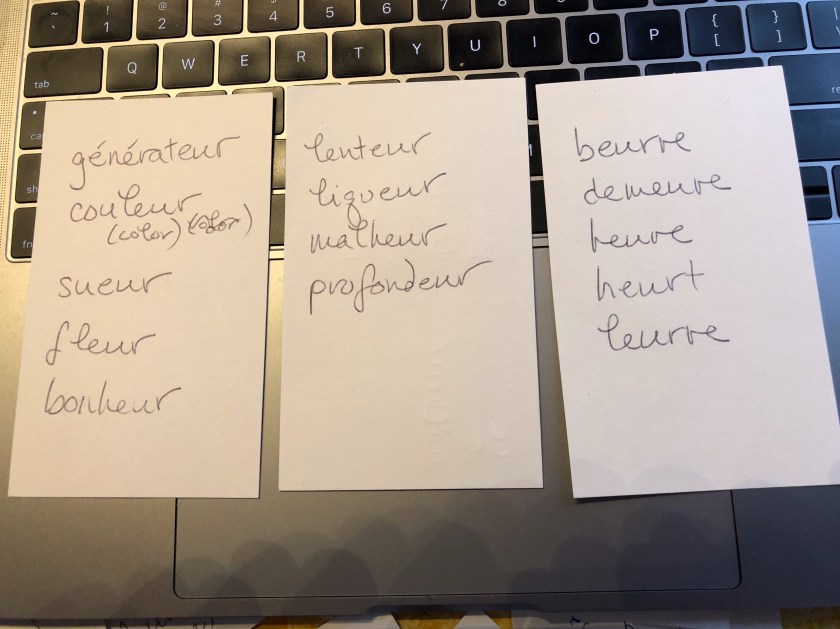 ~ ! @ # $ % 6 7 8
` 1 2 3 4 5 { }
tab Q W E R T Y U I O P [ ]
générateur
couleur
(color)
sueur
fleur
bonheur
lenteur
liqueur
malheur
profondeur
beurre
demeure
heure
heurt
leurre
fn